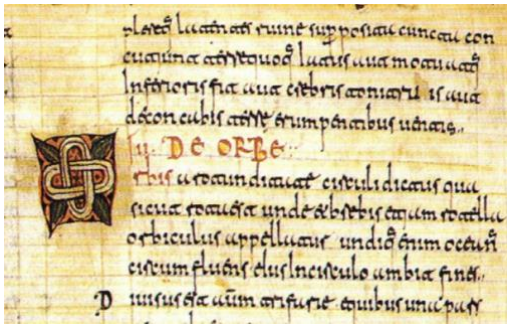 latentes ruine supposita cuncta con
cutiunt motu
Inferioris fit aut crebris tonitru is aut
de concabis terre erumpentibus uentis
II. DE ORBE
rbis a rotunditate circuli dictus quia
sicut rota est unde brebis etiam rotella
orbiculus appellatur undiq enim ocean
circumfluens eius In circulo ambit fines
D iuisus est autem trifarie equibus una pars